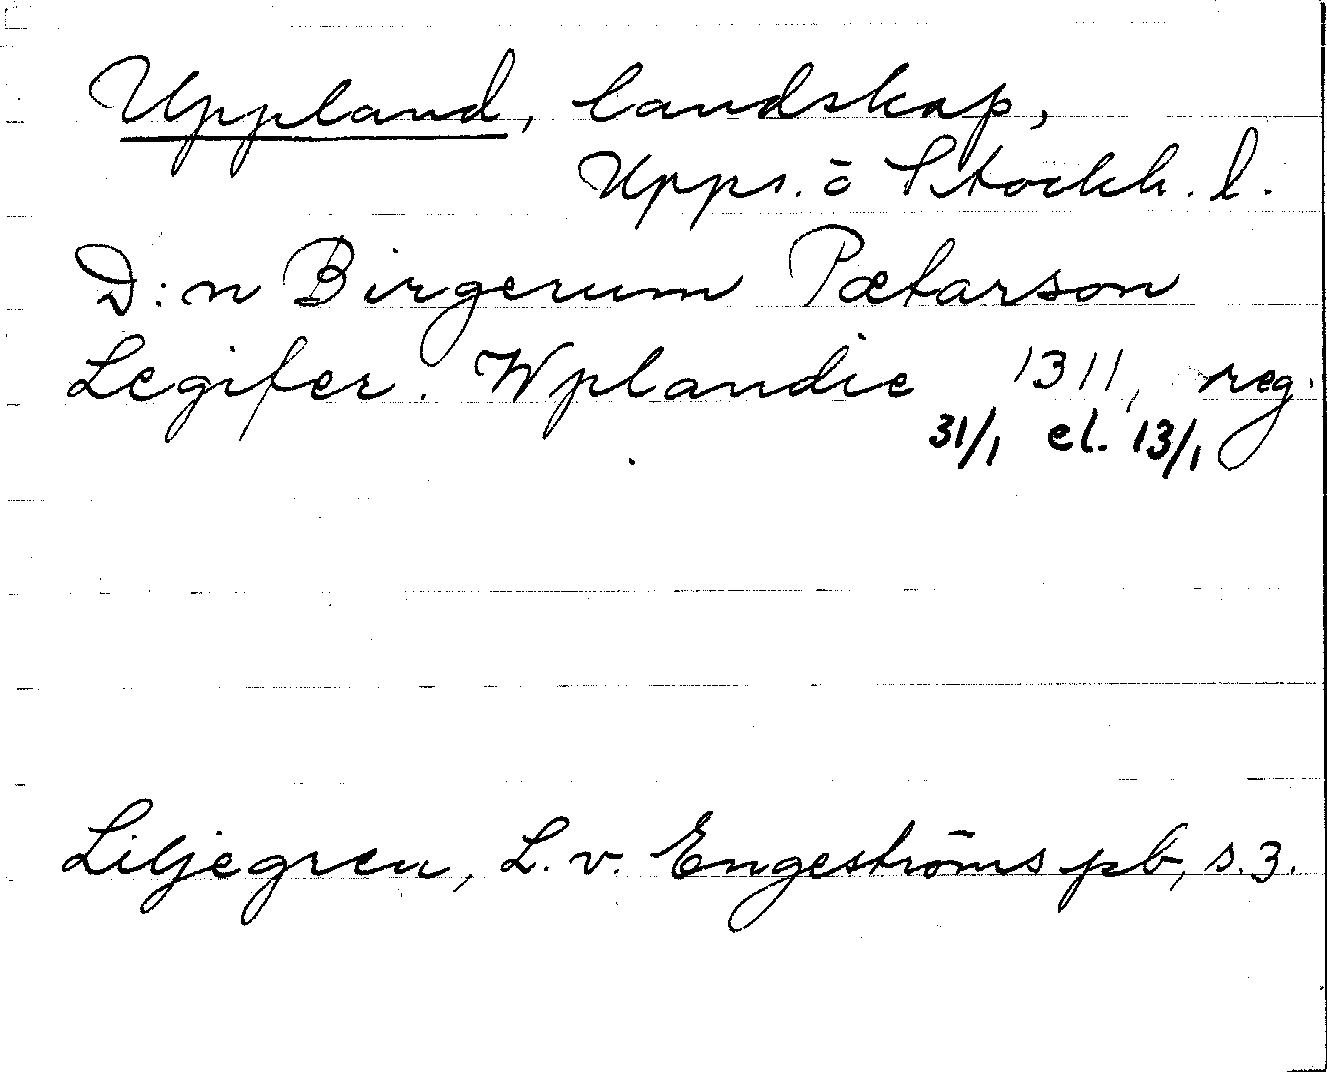 Uppland, landskap,
Upps. ō Stockh. l.
D:n Birgerum Pætarson
Legifer. Wplandie 1311, reg.
31/1 el. 13/1
Liljegren, L. v. Engeströms pb, s. 3.